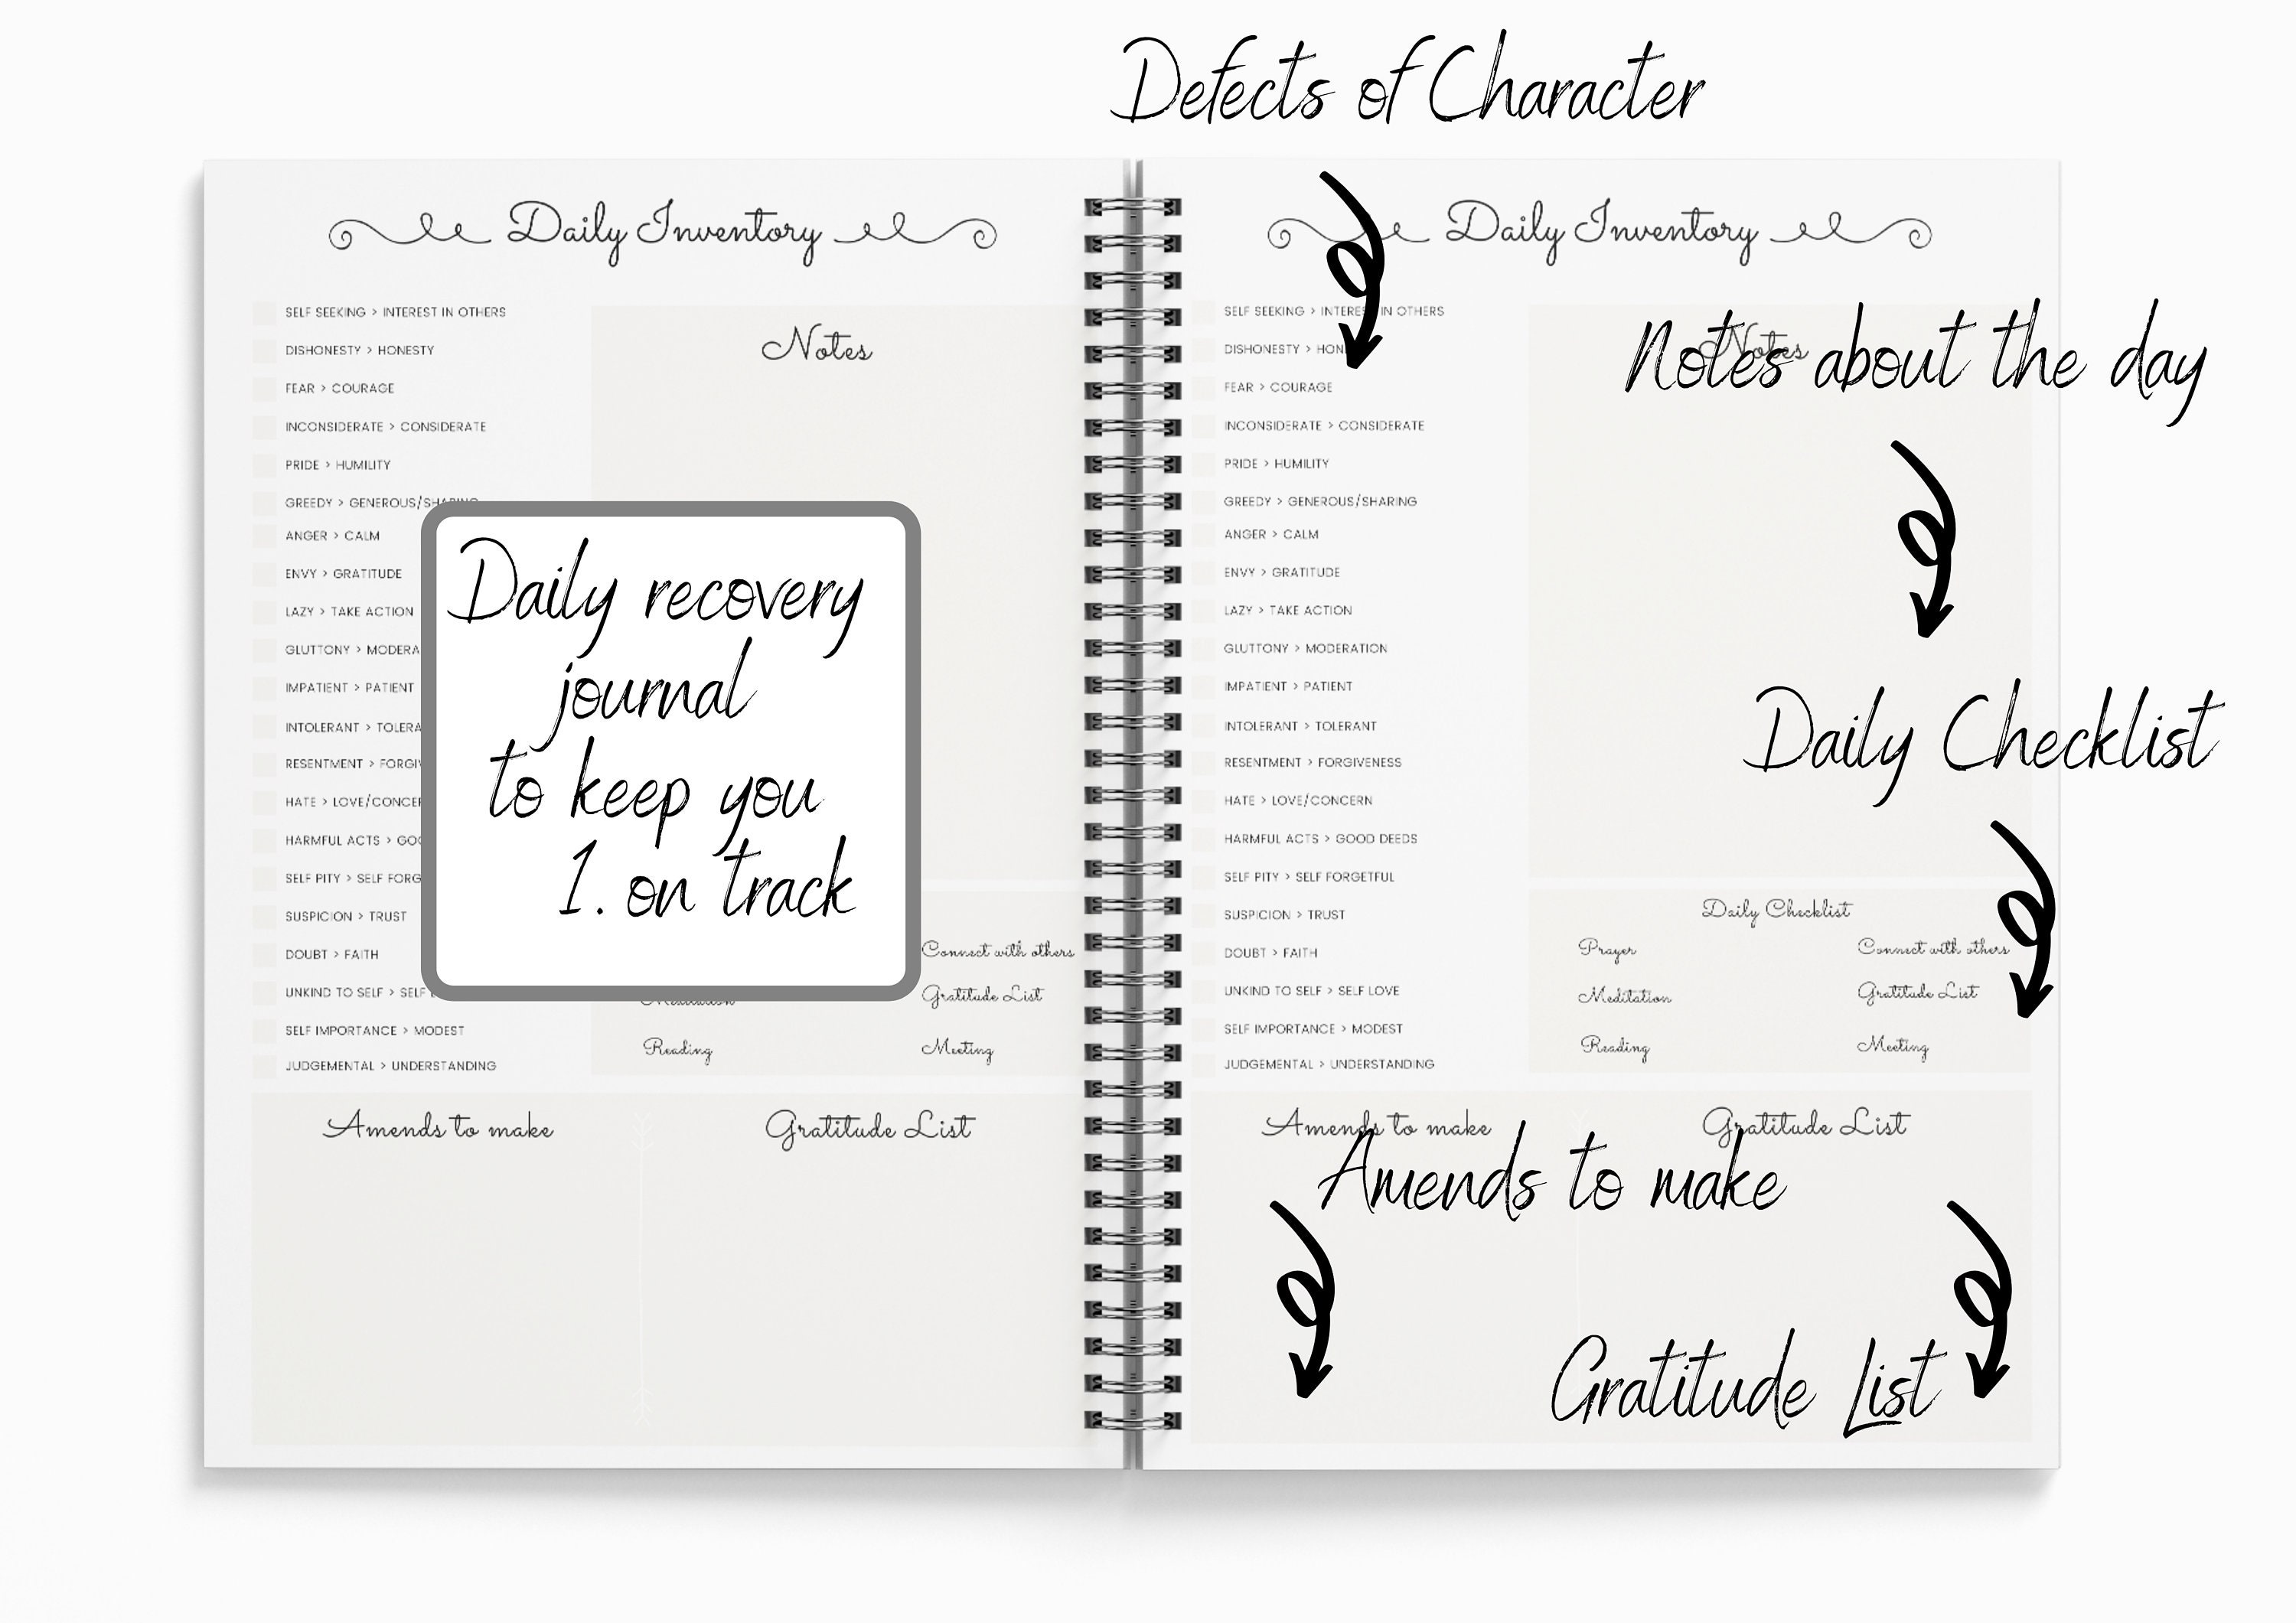 Defects of Character
Daily Inventory
SELF SEEKING > INTEREST IN OTHERS
DISHONESTY > HONESTY
FEAR > COURAGE
INCONSIDERATE > CONSIDERATE
PRIDE > HUMILITY
GREEDY > GENEROUS/SHARING
ANGER > CALM
ENVY > GRATITUDE
LAZY > TAKE ACTION
GLUTTONY > MODERA
IMPATIENT > PATIENT
INTOLERANT > TOLERA
RESENTMENT > FORGIV
HATE > LOVE/CONCER
HARMFUL ACTS > GOO
SELF PITY > SELF FORG
SUSPICION > TRUST
DOUBT > FAITH
UNKIND TO SELF > SELF
SELF IMPORTANCE > MODEST
JUDGEMENTAL > UNDERSTANDING
Notes
Daily recovery
journal
to keep you
1. on track
Connect with others
Meditation
Gratitude List
Reading
Meeting
Amends to make
Gratitude List
Daily Inventory
SELF SEEKING > INTEREST IN OTHERS
DISHONESTY > HON
FEAR > COURAGE
INCONSIDERATE > CONSIDERATE
PRIDE > HUMILITY
GREEDY > GENEROUS/SHARING
ANGER > CALM
ENVY > GRATITUDE
LAZY > TAKE ACTION
GLUTTONY > MODERATION
IMPATIENT > PATIENT
INTOLERANT > TOLERANT
RESENTMENT > FORGIVENESS
HATE > LOVE/CONCERN
HARMFUL ACTS > GOOD DEEDS
SELF PITY > SELF FORGETFUL
SUSPICION > TRUST
DOUBT > FAITH
UNKIND TO SELF > SELF LOVE
SELF IMPORTANCE > MODEST
JUDGEMENTAL > UNDERSTANDING
Notes
Notes about the day
Daily Checklist
Daily Checklist
Prayer
Connect with others
Meditation
Gratitude List
Reading
Meeting
Amends to make
Gratitude List
Amends to make
Gratitude List